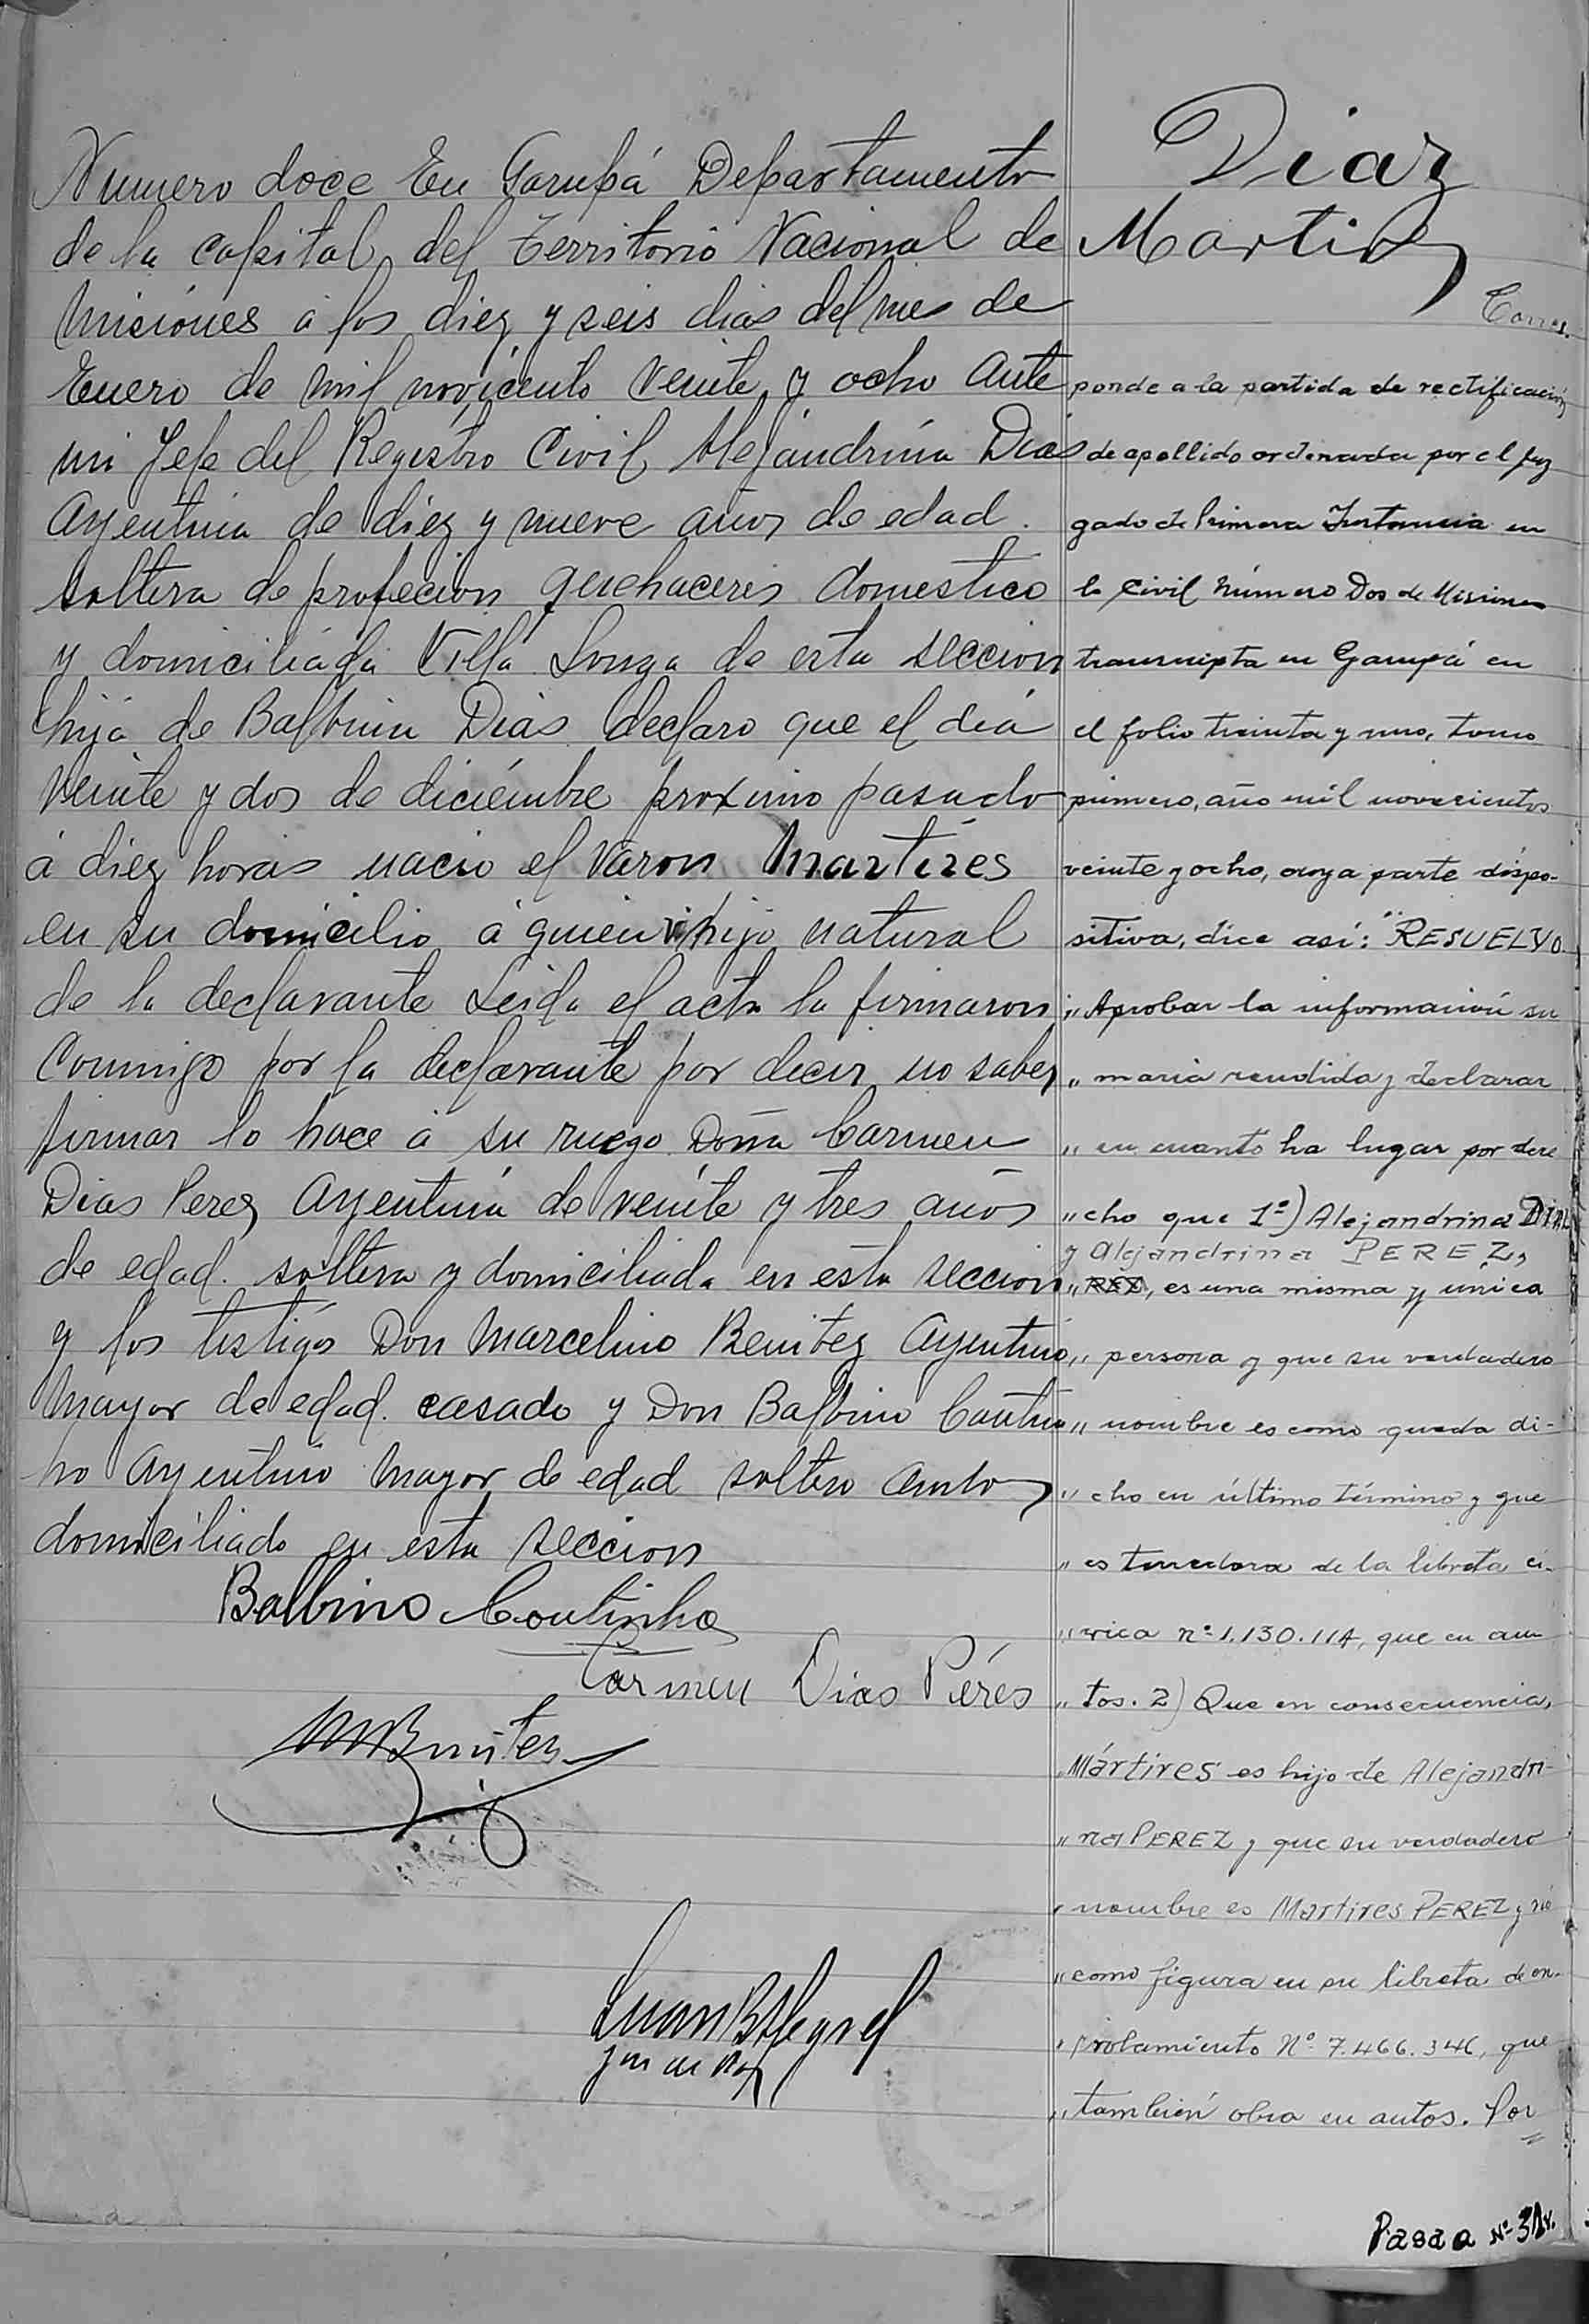 Numero doce En Garupá Departamento
de la capital del Territorio Nacional de
Misiónes á los diez y seis dias del mes de
Enero de mil novíciento veinte y ocho Ante
mi Jefe del Registro Civil Alejandrina Dias
Argentina de diez y nueve años de edad.
soltera de profecion quehaceres domestico
y domiciliada Villa Longa de esta seccion
hija de Balbina Dias declaro que el dia
veinte y dos de diciémbre proximo pasado
á diez horas nacio el varon Martires
en su domicilio á quien hijo natural
de la declarante Leida el acta la firmaron
Conmigo por la declarante por decir no saber
firmar lo hace á su ruego Doña Carmen
Dias Perez Argentina de veinte y tres años
de edad. soltera y domiciliada en esta seccion
y los testigos Don Marcelino Benitez Argentino
Mayor de edad. casado y Don Balbino Coutin
ho Argentino Mayor de edad soltero Ambos
domiciliado en esta seccion
Balbino Coutinho
Carmen Dias Pérés
MBenitez
Juan B Alegre
Diaz
Martires
Corres.
ponde a la partida de rectificación
de apellido ordenada por el Juz
gado de Primera Instancia en
lo Civil Número Dos de Misiones
transcripta en Garupá en
el folio treinta y uno, tomo
primero, año mil novecientos
veinte y ocho, cuya parte dispo-
sitiva, dice así: "RESUELVO
" Aprobar la información su
" maria rendida y declarar
" en cuanto ha lugar por dere
" cho que 1º) Alejandrina DIAZ
y Alejandrina PEREZ,
" REZ, es una misma y única
" persona y que su verdadero
" nombre es como queda di-
" cho en último término y que
" es tenedora de la libreta cí-
" vica nº 1.130.114, que en au
" tos. 2) Que en consecuencia,
" Mártires es hijo de Alejandri-
" na PEREZ y que su verdadero
" nombre es Martires PEREZ y no
" como figura en su libreta de en-
" rolamiento Nº 7.466.346, que
" también obra en autos. Por
Pasa a Nº 31v.